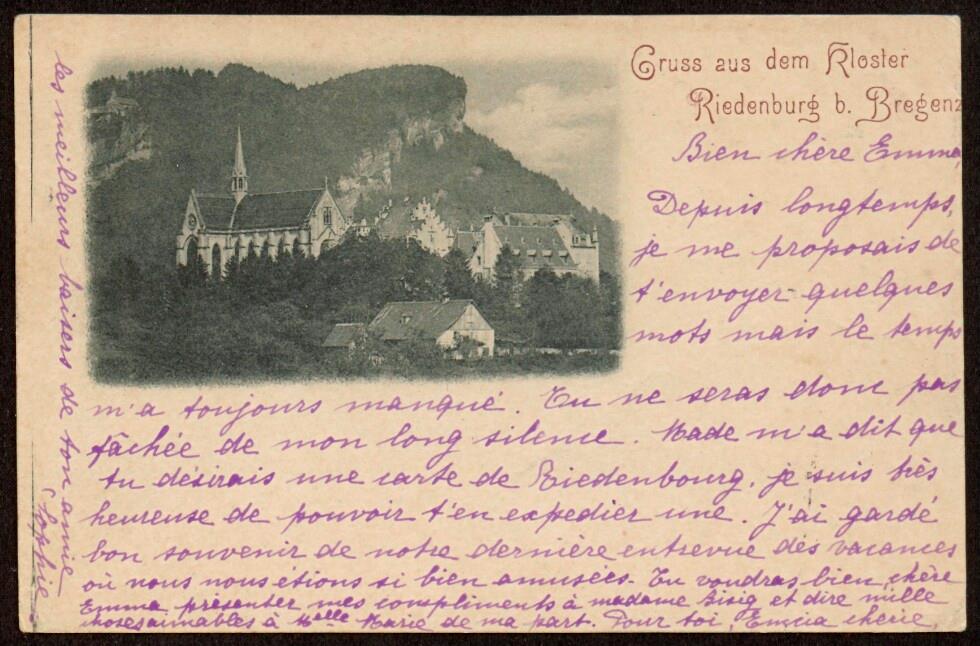 Gruss aus dem Kloster
Riedenburg b. Bregenz
Bien chère Emma,
Depuis longtemps,
je me proposais de
t'envoyer quelques
mots mais le temps
m'a toujours manqué. Tu ne seras donc pas
fâchée de mon long silence. Made m'a dit que
tu désirais une carte de Riedenbourg, je suis très
heureuse de pouvoir t'en expedier une. J'ai gardé
bon souvenir de notre dernière entrevue des vacances
où nous nous étions si bien amusées. Tu voudras bien, chère
Emma présenter mes compliments à madame Gisig et dire mille
choses aimables à Melle Marie de ma part. Pour toi, Emma chérie,
les meilleurs baisers de ton amie
Sophie